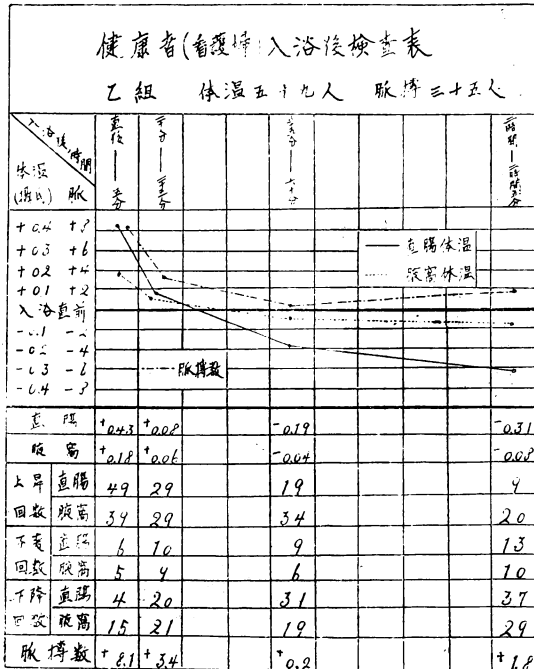 健康者(看護婦)入浴後検査表
乙組 体温五十九人 脈搏三十五人
入浴後時間
体温
(摂氏) 脈
直後—五分
六十分
二時間
+0.4 +8
+0.3 +6
+0.2 +4
+0.1 +2
入浴直前
-0.1 -2
-0.2 -4
-0.3 -6
-0.4 -8
直腸体温
腋窩体温
脈搏数
直腸 +0.43 +0.08 -0.19 -0.31
腋窩 +0.18 +0.06 -0.04
上昇回数 直腸 49 29 19 9
腋窩 39 29 34 20
直腸 6 10 9 13
回数 腋窩 5 9 6 10
下降回数 直腸 4 20 31 37
腋窩 15 21 19 29
脈搏数 +8.1 +3.4 +0.2 +1.8